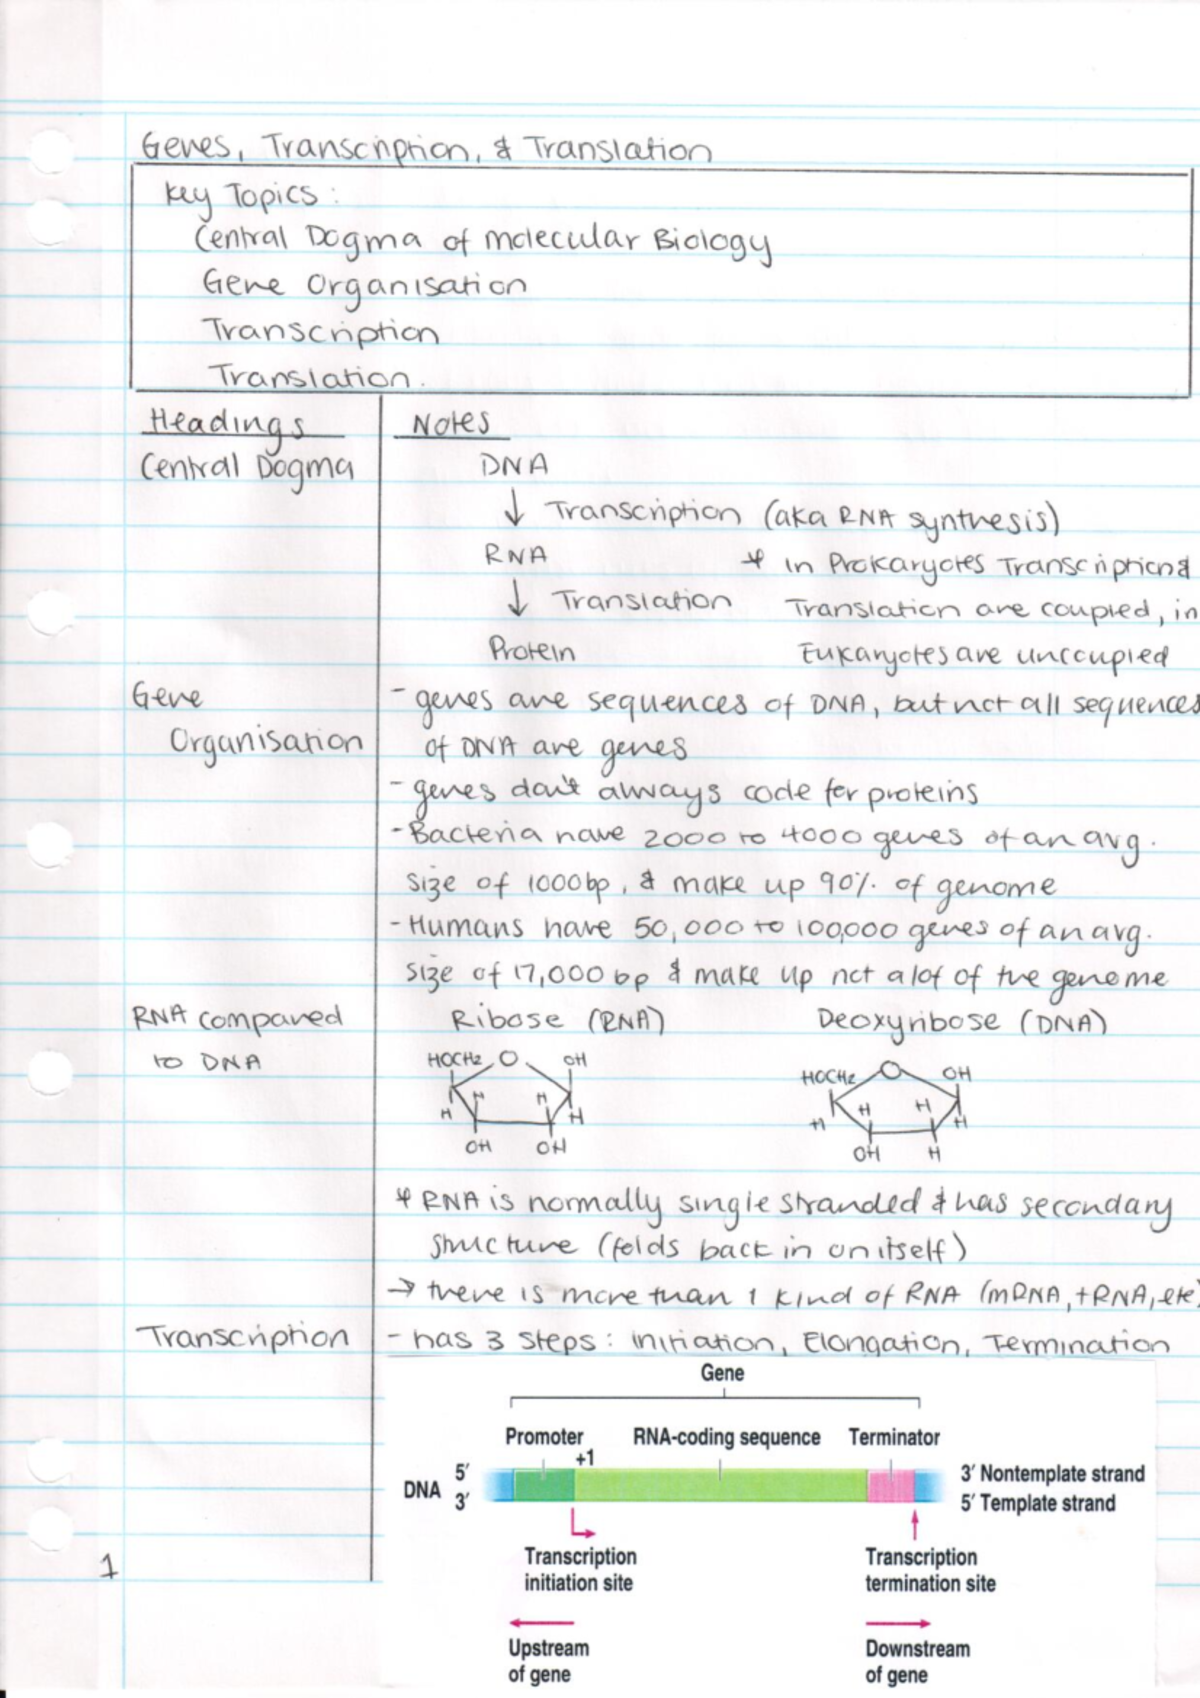 Genes, Transcription, & Translation
Key Topics:
Central Dogma of Molecular Biology
Gene Organisation
Transcription
Translation.
Headings
Notes
Central Dogma
DNA
↓ Transcription (aka RNA synthesis)
RNA
* in Prokaryotes Transcription &
↓ Translation
Translation are coupled, in
Protein
Eukaryotes are uncoupled
Gene
Organisation
- genes are sequences of DNA, but not all sequences
of DNA are genes
- genes don't always code for proteins
- Bacteria have 2000 to 4000 genes of an avg.
size of 1000bp, & make up 90% of genome
- Humans have 50,000 to 100,000 genes of an avg.
size of 17,000 bp & make up not a lot of the genome
RNA compared
to DNA
Ribose (RNA)
Deoxyribose (DNA)
HOCH2 O OH
H H H H
OH OH
HOCH2 O OH
H H H H
OH H
* RNA is normally single stranded & has secondary
structure (folds back in on itself)
→ there is more than 1 kind of RNA (mRNA, tRNA, etc)
Transcription
- has 3 steps: Initiation, Elongation, Termination
Gene
Promoter
RNA-coding sequence
Terminator
+1
DNA
5′
3′
3′ Nontemplate strand
5′ Template strand
Transcription
initiation site
Transcription
termination site
Upstream
of gene
Downstream
of gene
1